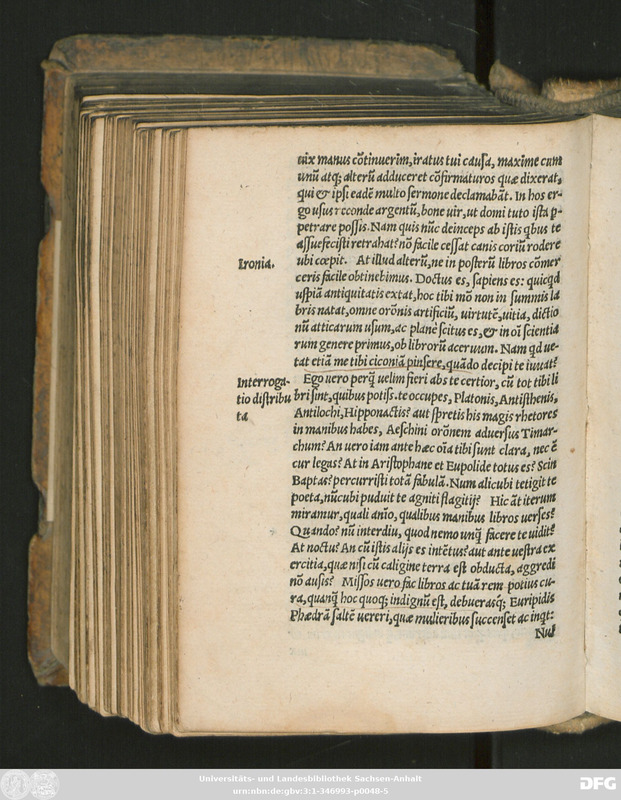 uix manus cõtinuerim, iratus tui causa, maxime cum
unũ atq; alterũ adduceret cõfirmaturos quæ dixerat,
qui & ipsi eadē multo sermone declamabãt. In hos er-
go usus reconde argentũ, bone uir, ut domi tuto ista p-
petrare possis. Nam quis nũc deinceps ab istis qbus te
assuefecisti retrahat? nõ facile cessat canis coriũ rodere
Ironia.
ubi cœpit. At illud alterũ, ne in posterũ libros cõmer
ceris facile obtinebimus. Doctus es, sapiens es: quicqd
uspiã antiquitatis extat, hoc tibi mõ non in summis la
bris natat, omne orõnis artificiũ, uirtutẽ, uitia, dictio
nũ atticarum usum, ac planè scitus es, & in oĩ scientia
rum genere primus, ob librorũ aceruum. Nam qd ue-
tat etiã me tibi ciconiã pinsere, quãdo decipi te iuuat?
Interroga-
tio distribu
ta
Ego uero perq̃ uelim fieri abs te certior, cũ tot tibi li
bri sint, quibus potiss. te occupes, Platonis, Antisthenis,
Antilochi, Hipponactis? aut spretis his magis rhetores
in manibus habes, Aeschini orõnem aduersus Timar-
chum? An uero iam ante hæc oĩa tibi sunt clara, nec ẽ
cur legas? At in Aristophane et Eupolide totus es? Scin
Baptas? percurristi totã fabulã. Num alicubi tetigit te
poeta, nũcubi puduit te agniti flagitij? Hic ãt iterum
miramur, quali anĩo, qualibus manibus libros uerses?
Quando? nũ interdiu, quod nemo unq̃ facere te uidit?
At noctu? An cũ istis alijs es intẽtus? aut ante uestra ex
ercitia, quæ nisi cũ caligine terra est obducta, aggredi
nõ ausis? Missos uero fac libros ac tuã rem potius cu-
ra, quanq̃ hoc quoq; indignũ est, debuerasq; Euripidis
Phædrã saltẽ uereri, quæ mulieribus succenset ac inqt:
Nul
Universitäts- und Landesbibliothek Sachsen-Anhalt
urn:nbn:de:gbv:3:1-346993-p0048-5
DFG